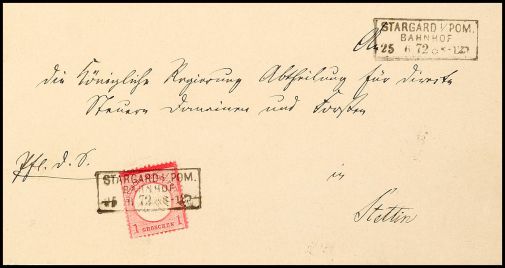 STARGARD I/POM.
BAHNHOF
25 6 72
An
die Königliche Regierung Abtheilung für direkte
Steuern Domainen und Forsten
Pfl. d. S.
in
STARGARD I/POM.
BAHNHOF
25 6 72
1 GROSCHEN 1
Stettin